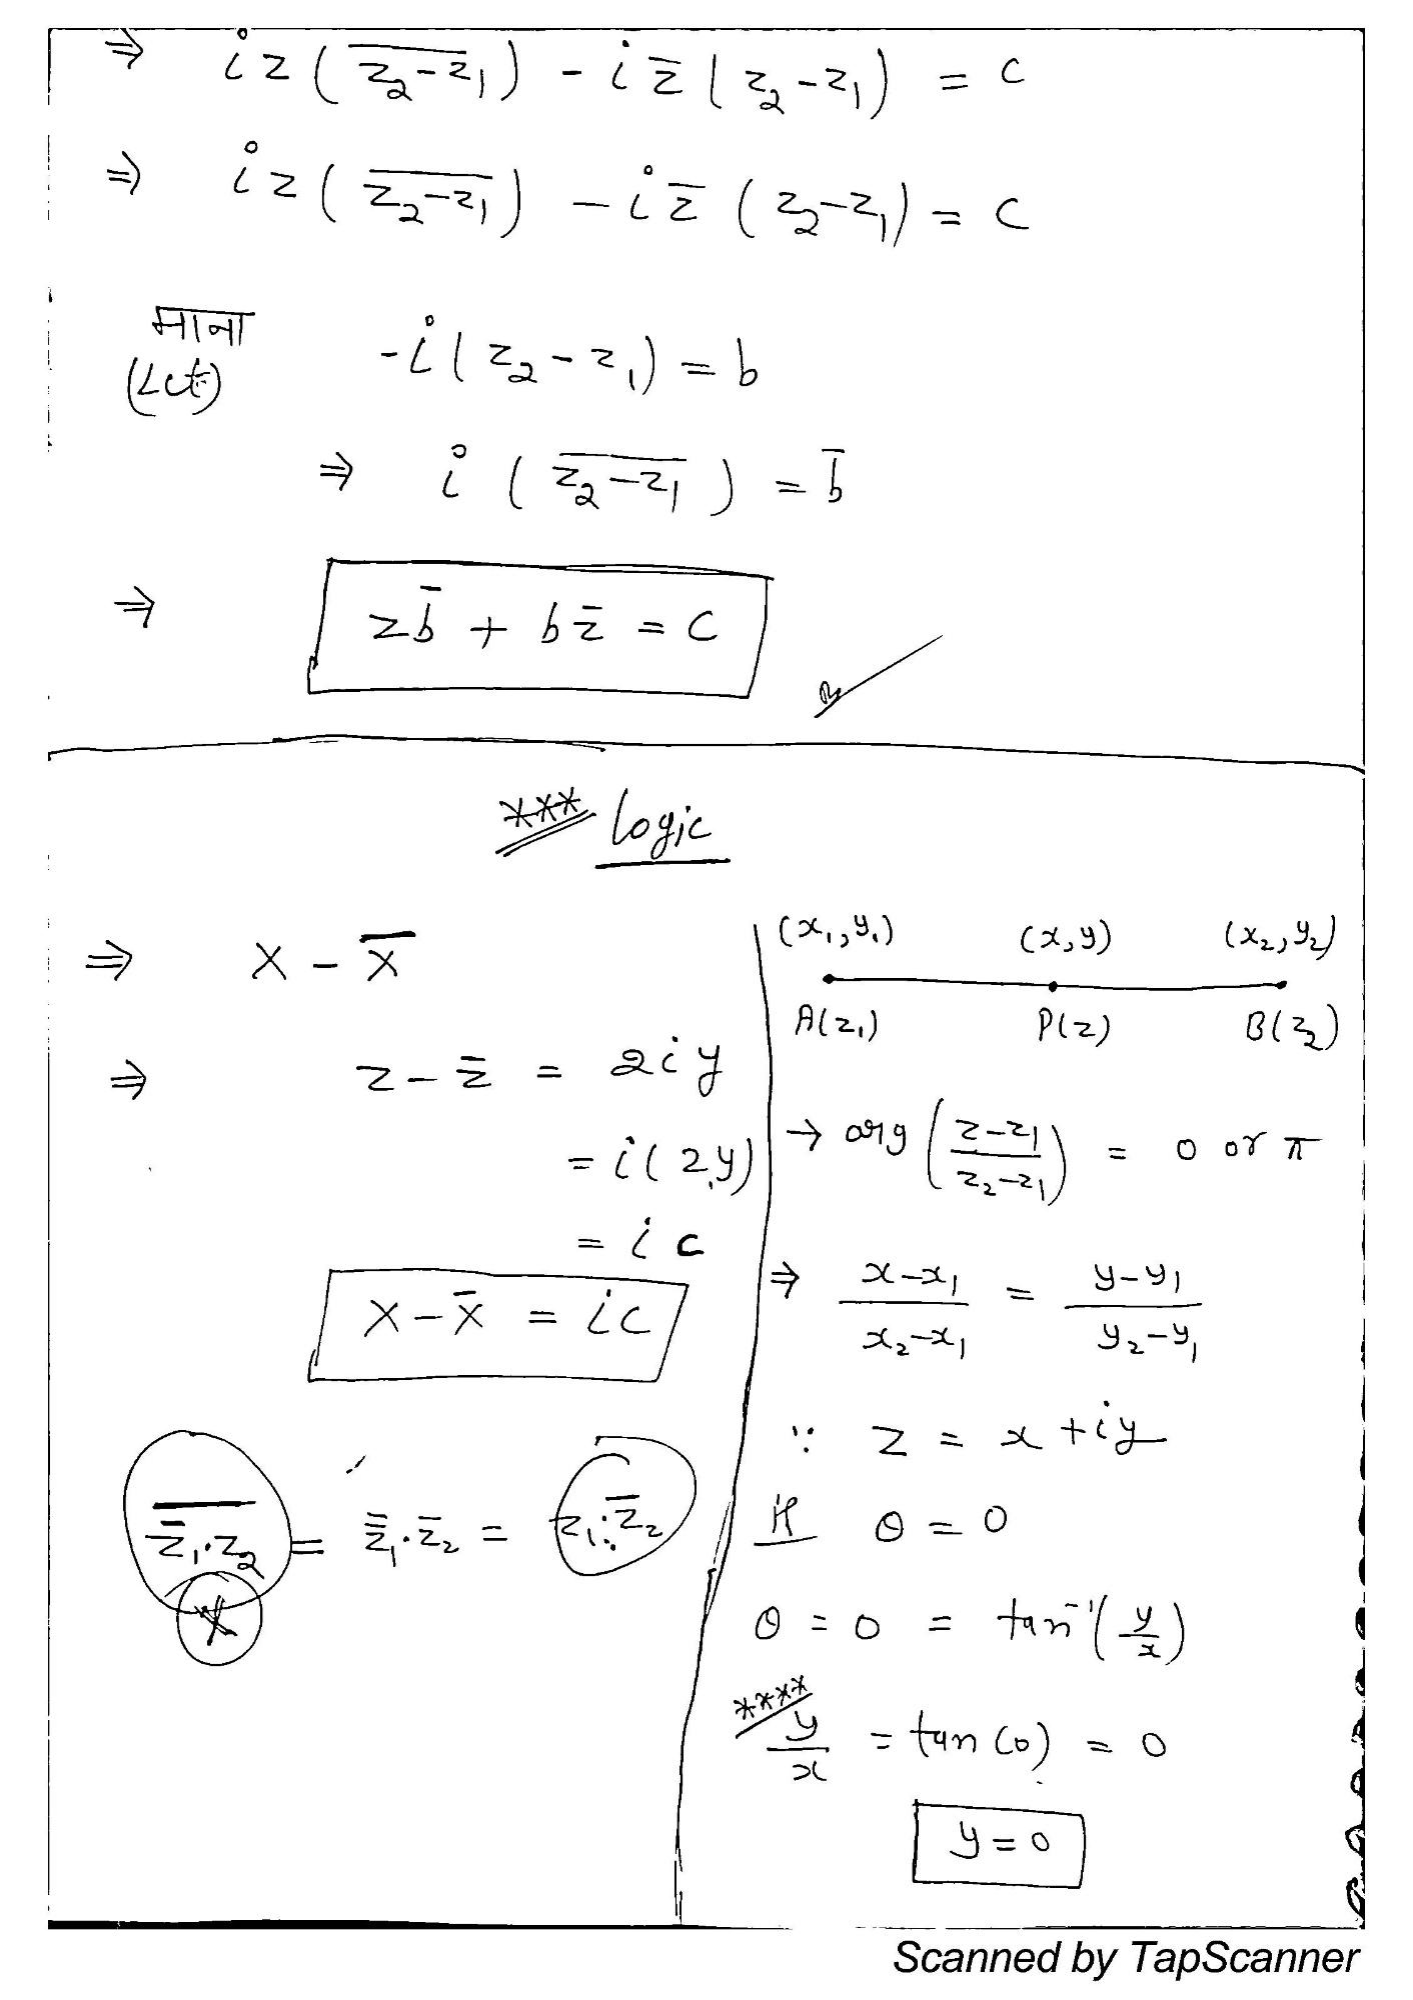 ⇒ iz(z̅₂̅-̅z̅₁̅) - iz̅(z₂-z₁) = c
⇒ iz(z̅₂̅-̅z̅₁̅) - iz̅(z₂-z₁) = c
माना
(Let)
-i(z₂-z₁) = b
⇒ i(z̅₂̅-̅z̅₁̅) = b̅
⇒ zb̅ + bz̅ = c
*** Logic
⇒ X - X̅
⇒ z - z̅ = 2iy
= i(2y)
= ic
X - X̅ = ic
z̅̅₁̅.̅z̅₂̅ = z̅̅₁.z̅₂ = z₁.z̅₂
X
(x₁,y₁) (x,y) (x₂,y₂)
A(z₁) P(z) B(z₂)
→ arg((z-z₁)/(z₂-z₁)) = 0 or π
⇒ (x-x₁)/(x₂-x₁) = (y-y₁)/(y₂-y₁)
∵ z = x+iy
If θ = 0
θ = 0 = tan⁻¹(y/x)
**** y/x = tan(0) = 0
y = 0
Scanned by TapScanner